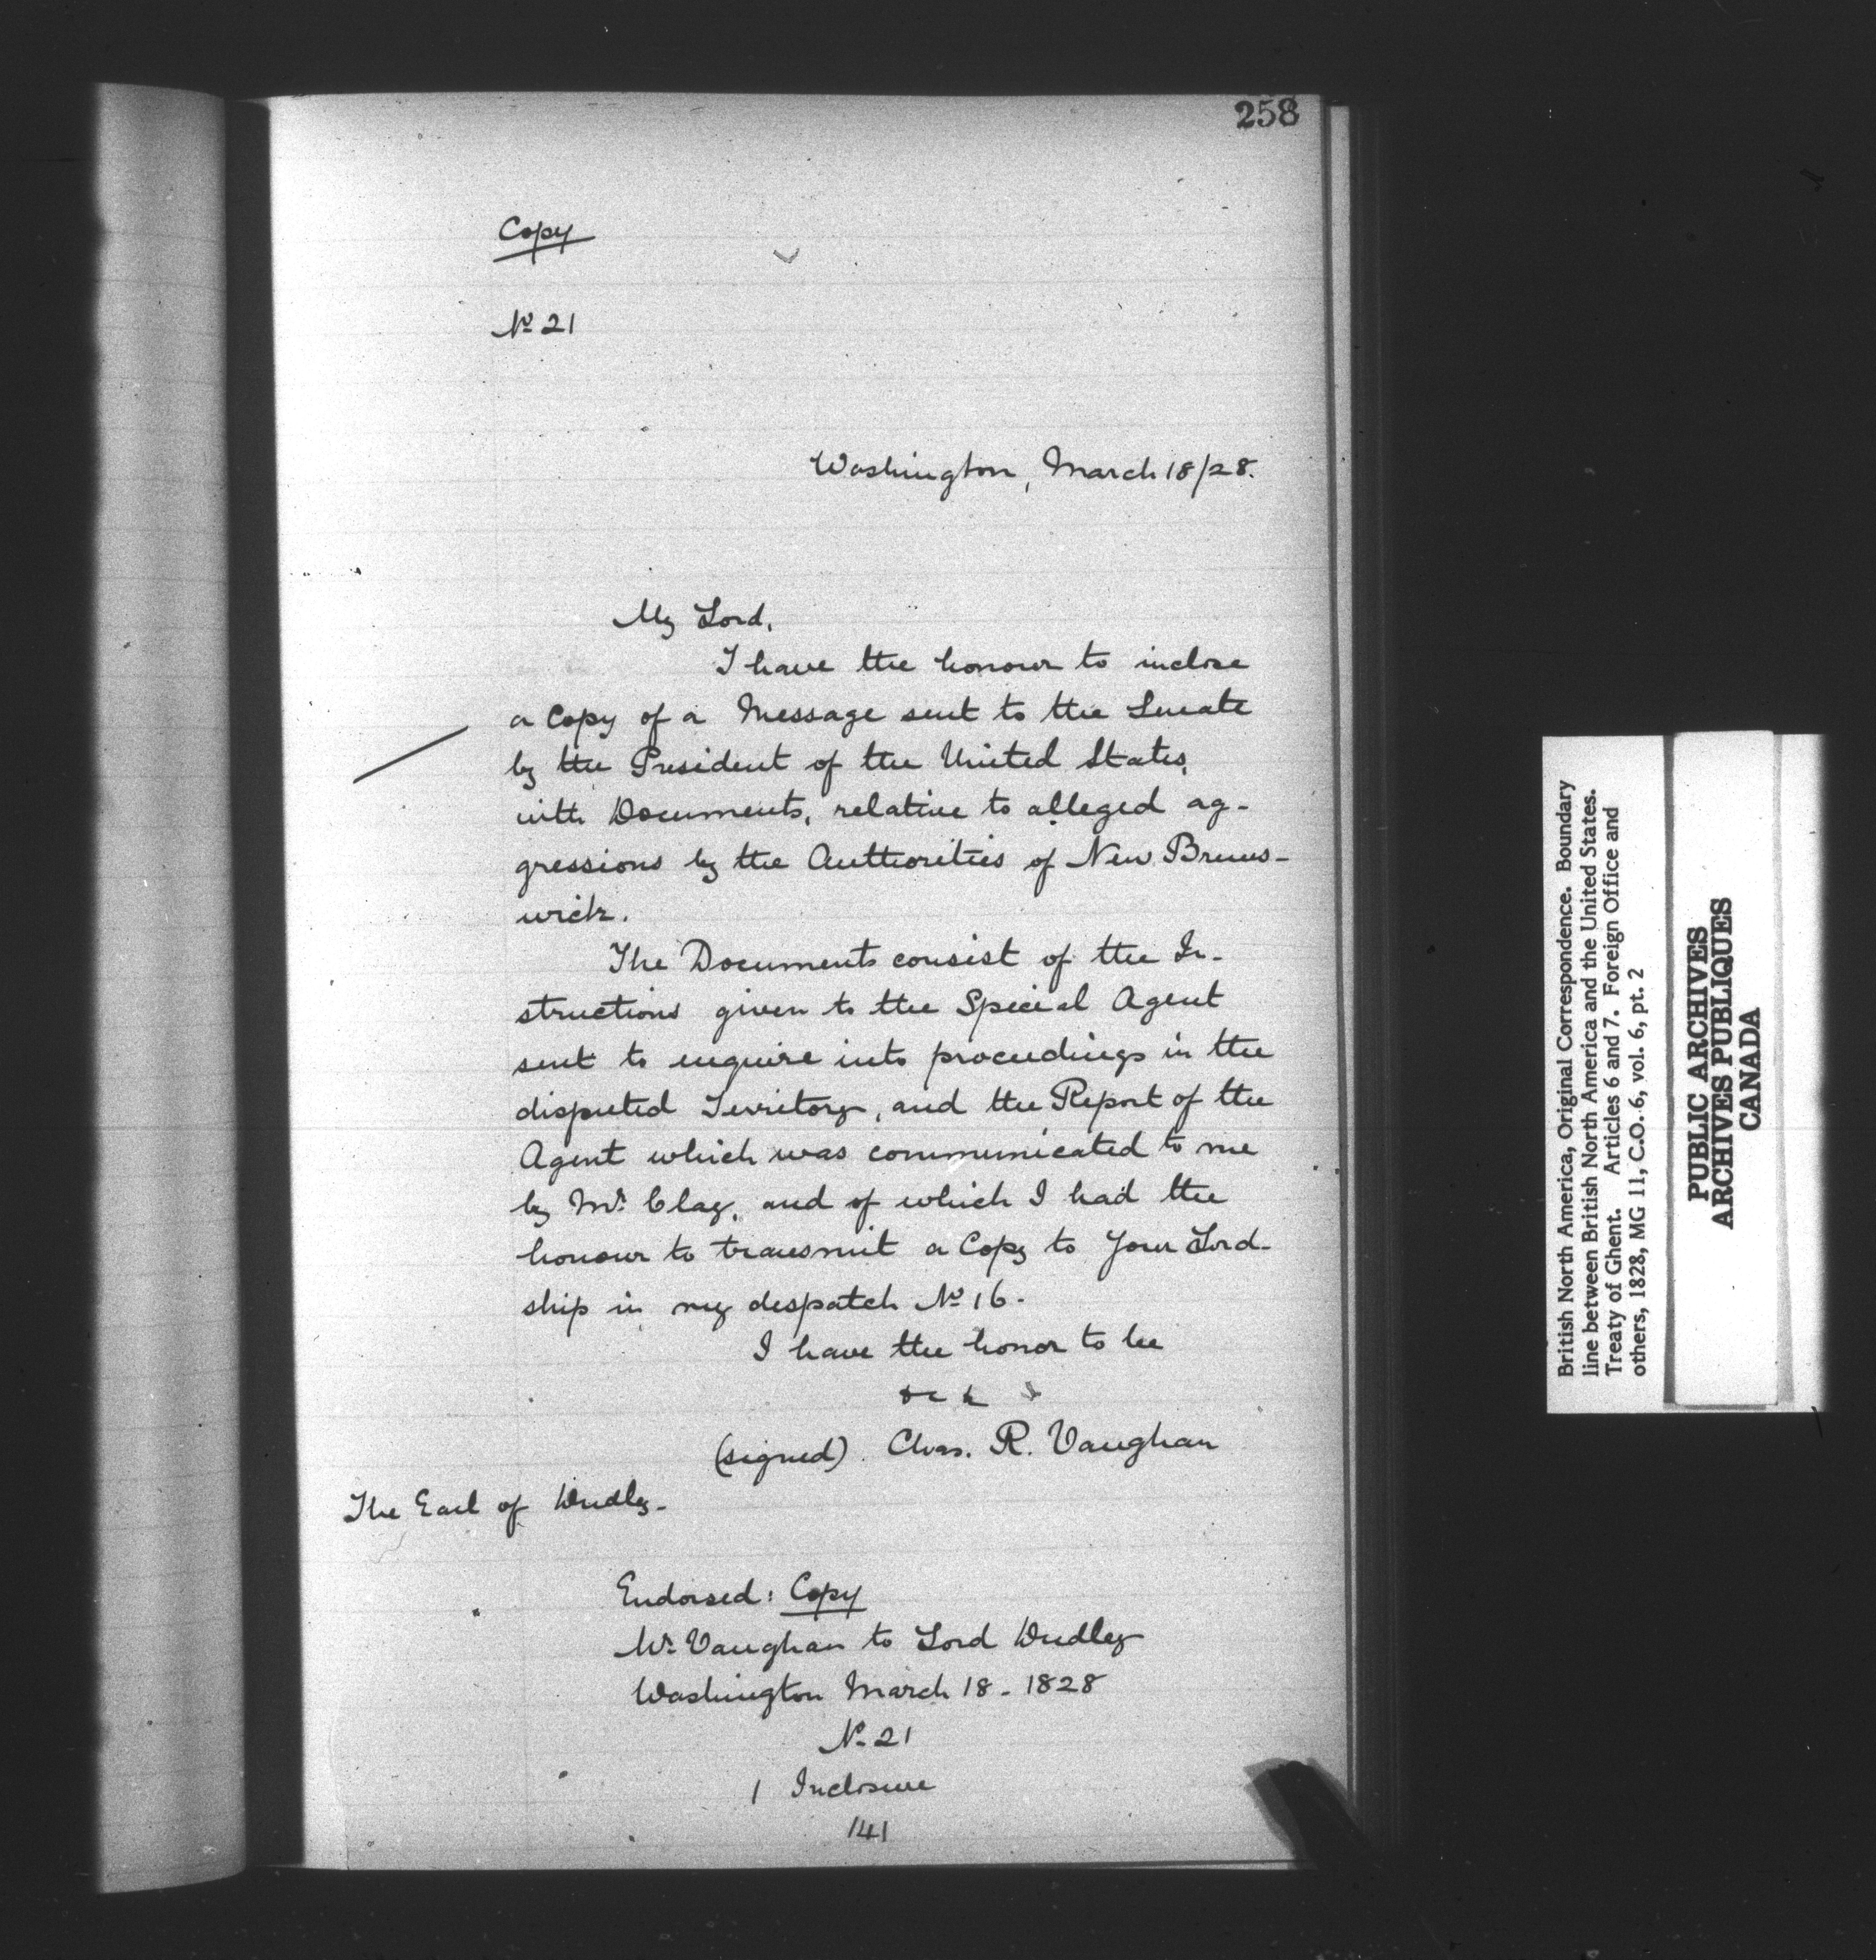 258
Copy
No 21
Washington, March 18/28.
My Lord,
I have the honour to inclose
a Copy of a Message sent to the Senate
by the President of the United States,
with Documents, relative to alleged ag-
gressions by the Authorities of New Bruns-
wick.
The Documents consist of the In-
structions given to the Special Agent
sent to enquire into proceedings in the
disputed Territory, and the Report of the
Agent which was communicated to me
by Mr. Clay, and of which I had the
honour to transmit a Copy to Your Lord-
ship in my despatch No 16.
I have the honor to be
&c &
(signed). Chas. R. Vaughan
The Earl of Dudley-
Endorsed: Copy
Mr. Vaughan to Lord Dudley
Washington March 18 - 1828
No. 21
1 Inclosure
141
British North America, Original Correspondence. Boundary
line between British North America and the United States.
Treaty of Ghent. Articles 6 and 7. Foreign Office and
others, 1828, MG 11, C.O. 6, vol. 6, pt. 2
PUBLIC ARCHIVES
ARCHIVES PUBLIQUES
CANADA